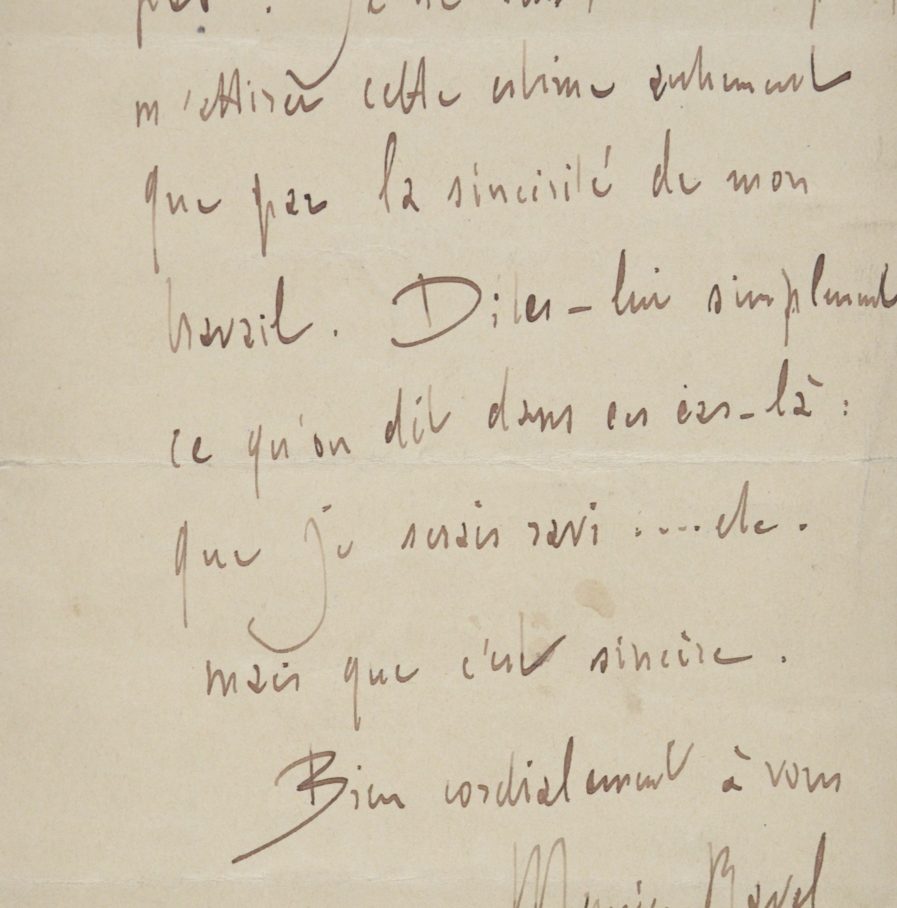 m'attirer cette estime autrement
que par la sincérité de mon
travail. Dites-lui simplement
ce qu'on dit dans ces cas-là :
que je serais ravi .... etc.
mais que c'est sincère.
Bien cordialement à vous
Maurice Ravel